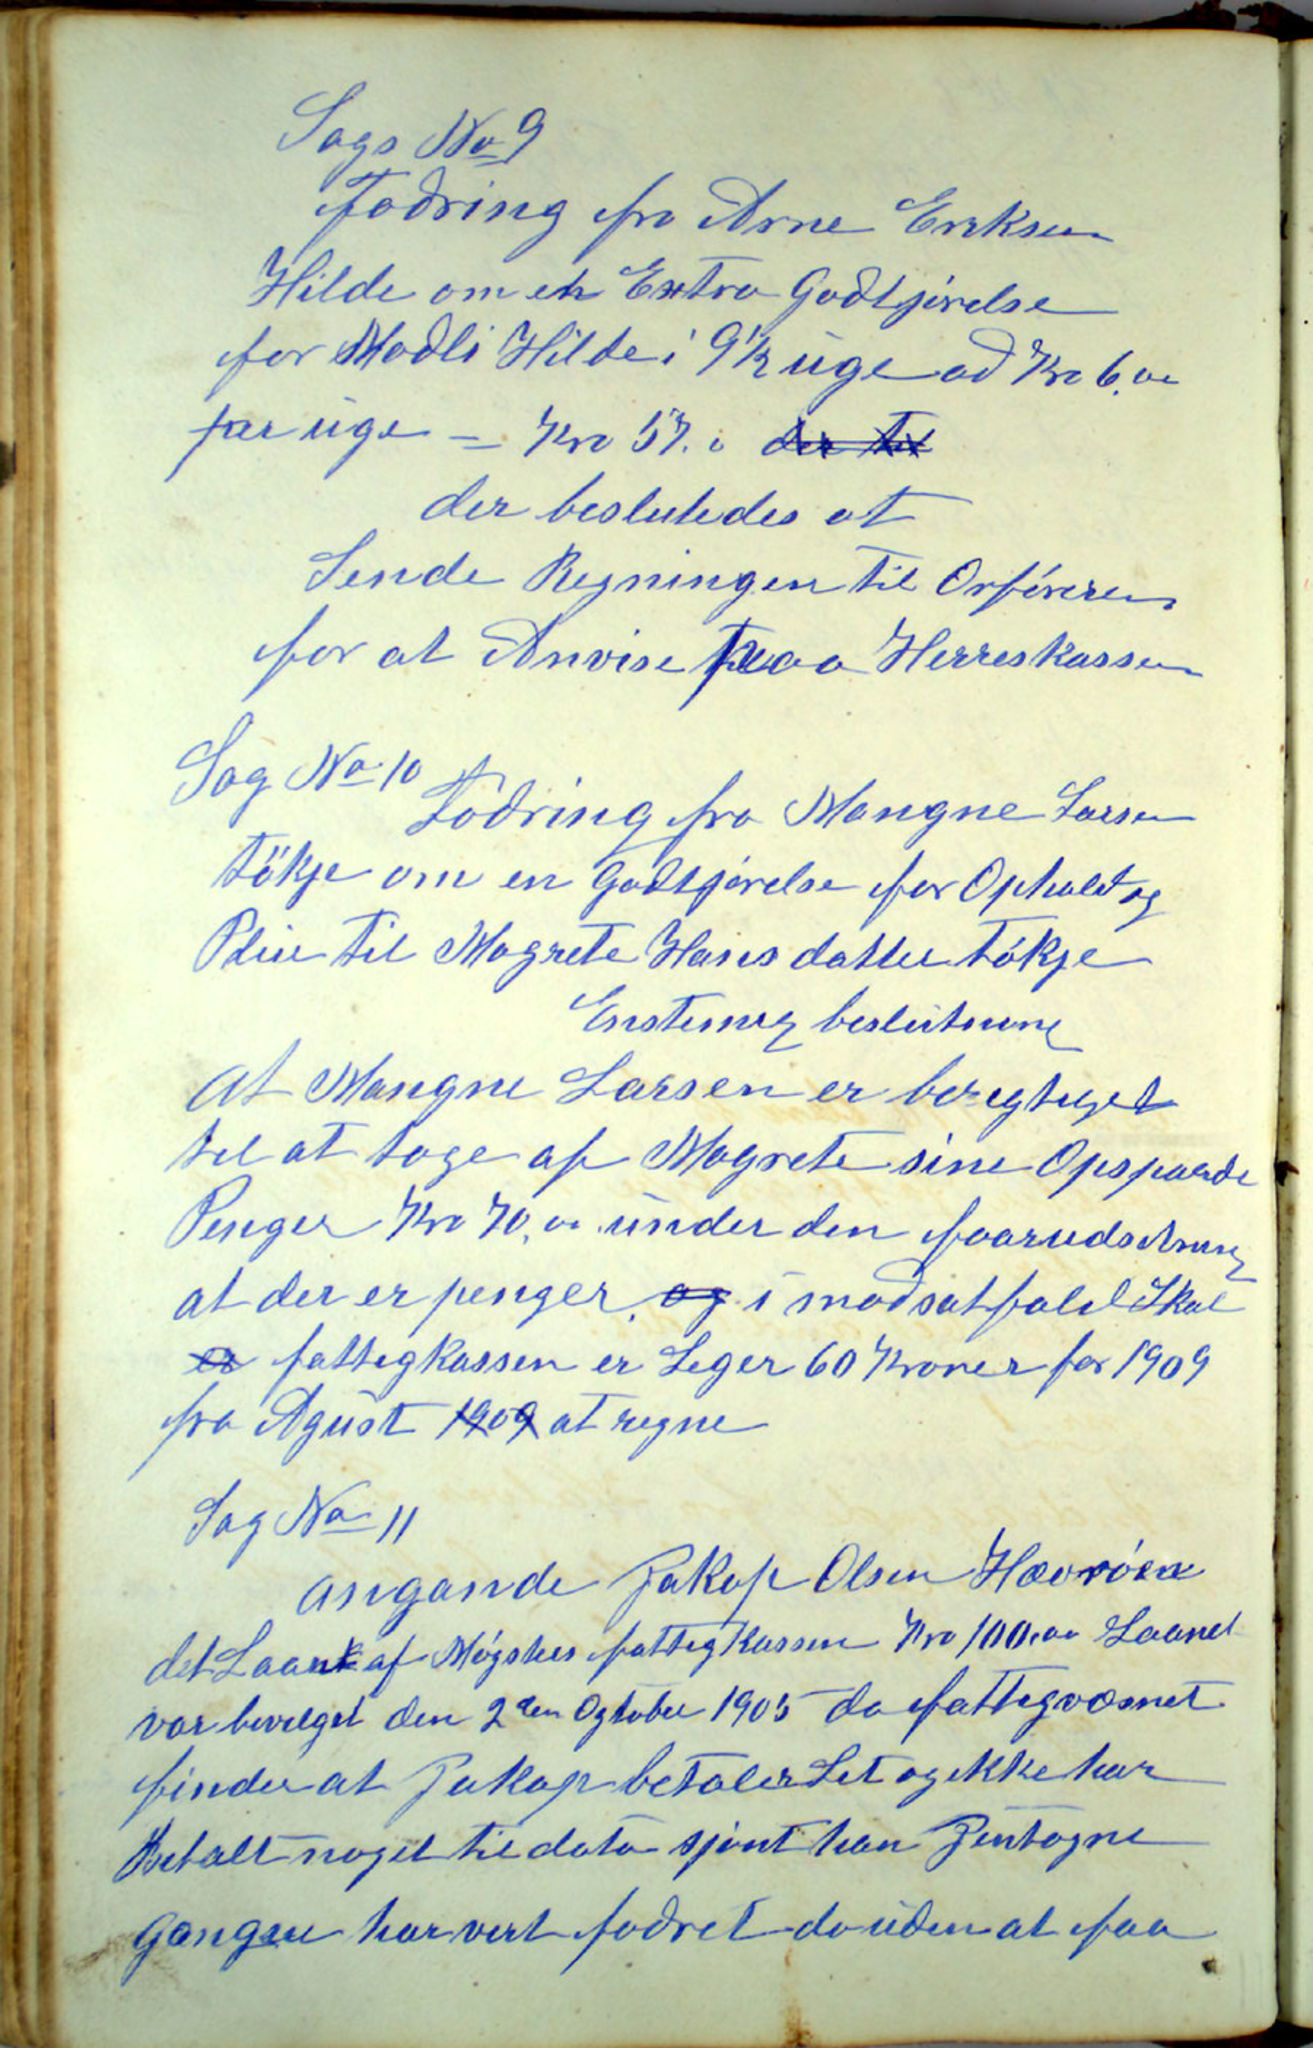 Sags No 9
Fodring fra Arne Eriksen
Hilde om en Extra Godtjørelse
for Madli Hilde i 9½ uge ad Kro 6.00
per uge = Kro 57.0 der til
der besluttedes at
Sende Regningen til Orføreren
for at Anvise paa Herreskassen
Sag No 10
Fodring fra Mangne Larsen
Tökje om en Godtjørelse for Ophold og
Pleie til Magrete Hansdatter Tökje
Enstemig beslutning
At Mangne Larsen er beregtiget
til at tage af Magrete sine Opsparde
Penger Kro 70.00 under den foarudsetning
at der er penger. og i modsatfald Skal
er fattigkassen er Leger 60 Kroner for 1909
fra Agust 1909 at regne
Sag No 11
angande Jakop Olsen Hævrøen
det Laant af Møgster fattigkassen Kro 100.00 Laanet
var bevelget den 2den Ogtober 1905 da fattigvæsnet
finder at Jakop betaler Let og ikke har
Betalt noget til dato sjønt han Jentagne
Gangeer har vert fodret da uden at faa